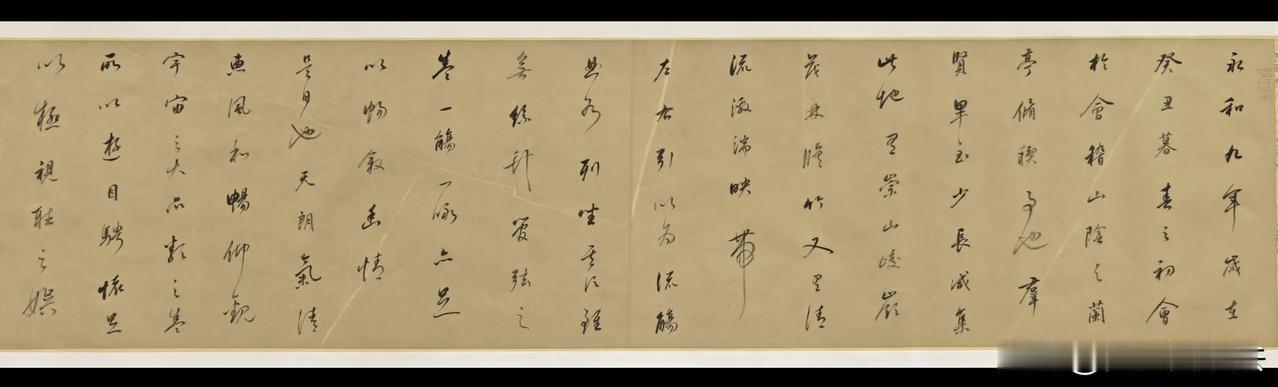 永和九年歲在
癸丑暮春之初會
於會稽山陰之蘭
亭脩稧事也群
賢畢至少長咸集
此地有崇山峻嶺
茂林脩竹又有清
流激湍映帶
左右引以為流觴
曲水列坐其次雖
無絲竹管弦之
盛一觴一詠亦足
以暢敘幽情
是日也天朗氣清
惠風和暢仰觀
宇宙之大品類之盛
所以遊目騁懷足
以極視聽之娛